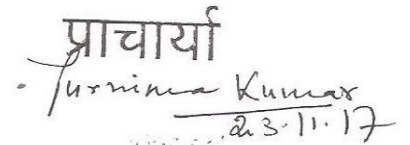 प्राचार्या
Purnima Kumar
23.11.17